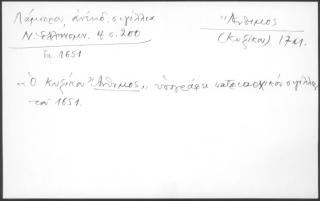 Λάμπρου, ἀνέκδ. σιγίλλια
Ν. Ἑλληνομν. 4 σ. 200
ἐν 1651
Ἄνθιμος
(Κυζίκου) 17 αι.
« Ὁ Κυζίκου "Ἄνθιμος" ὑπογράφει πατριαρχικόν σιγίλλιον
τοῦ 1651.